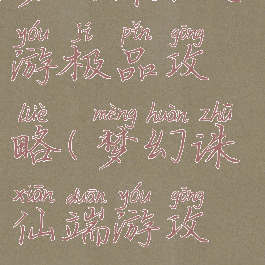 yóu jí pǐn gōng
游极品攻
lüè mèng huàn zhū
略(梦幻诛
xiān duān yóu gōng
仙端游攻